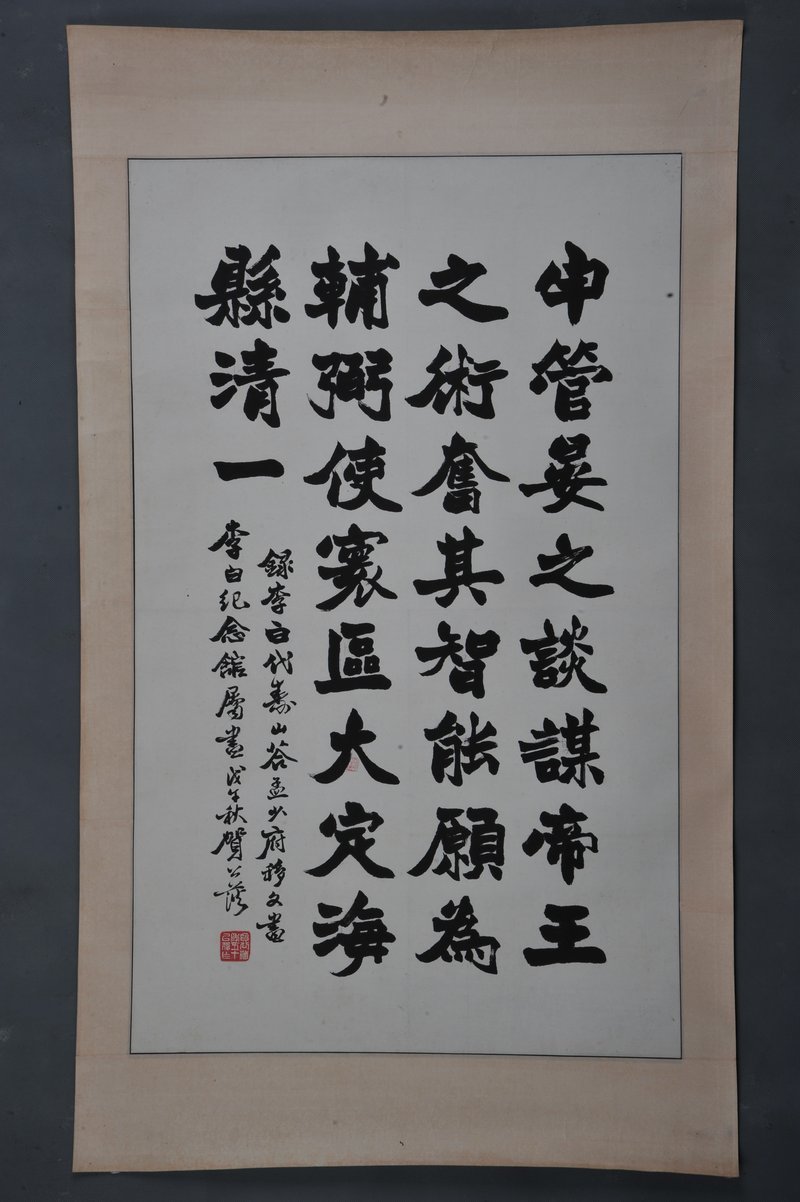 申管晏之談謀帝王
之術奮其智能願為
輔弼使寰區大定海
縣清一
錄李白代壽山答孟少府移文書
李白紀念館屬書戊午秋賀